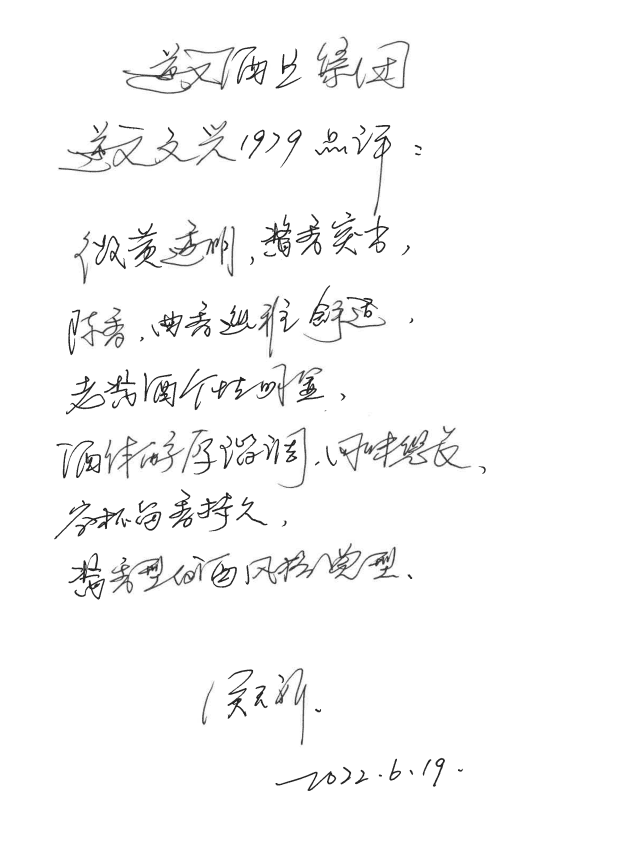 遵义酒业集团
遵义文兴1979点评：
微黄透明，酱香突出，
陈香、曲香幽雅舒适，
老酱酒个性明显，
酒体醇厚谐调，回味悠长、
空杯留香持久，
酱香型白酒风格典型、
2022.6.19.